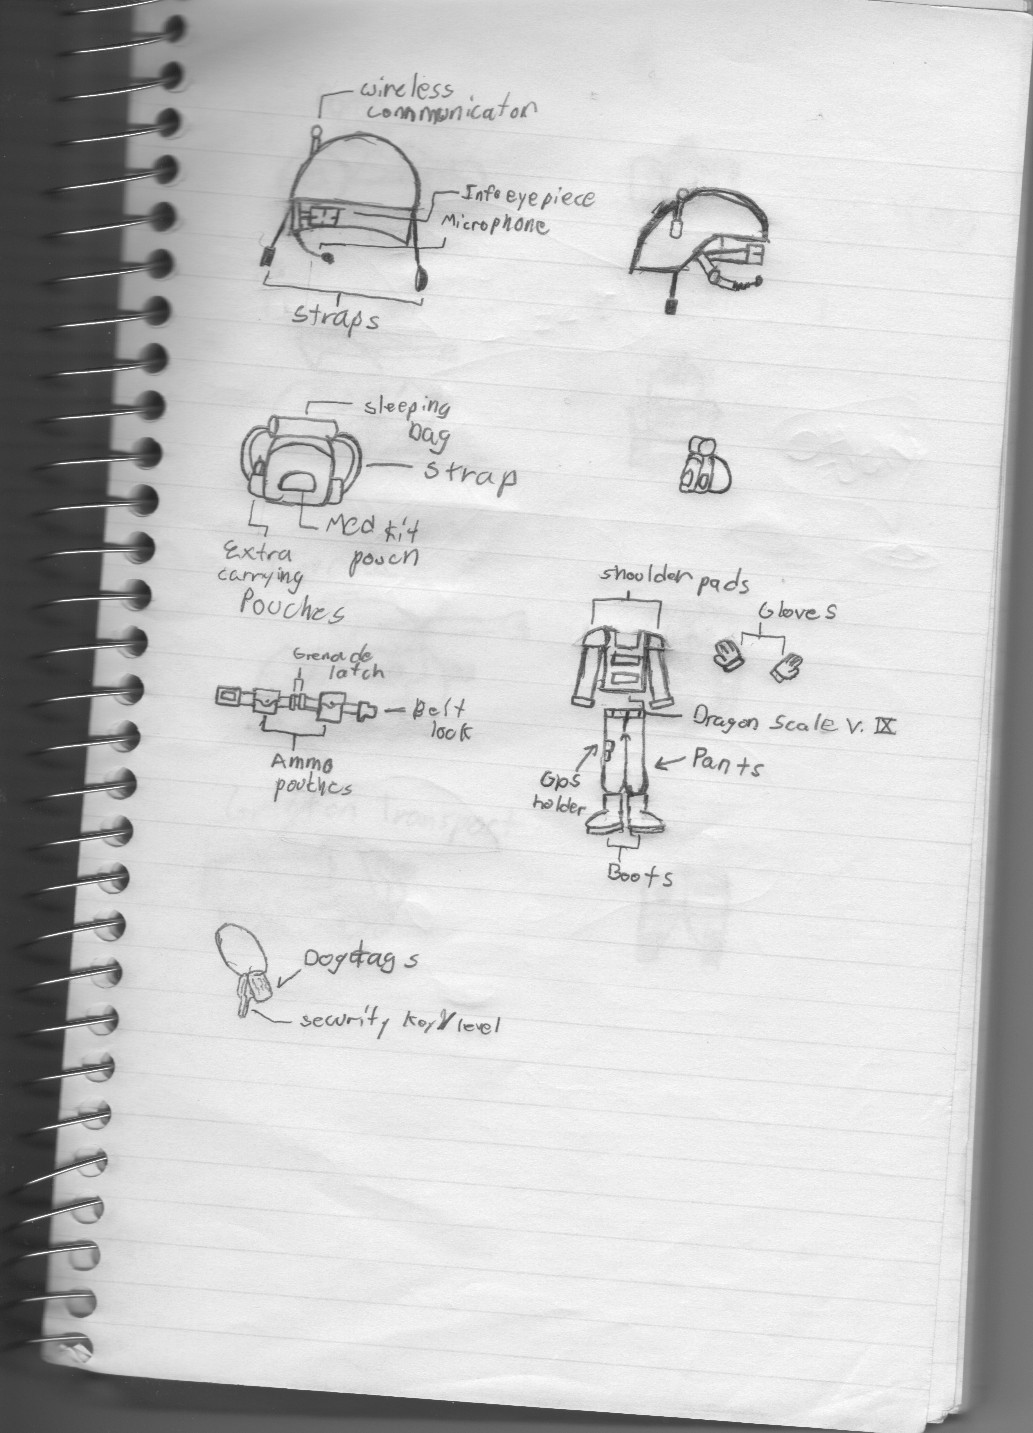 wireless
communicator
Info eyepiece
Microphone
straps
sleeping
bag
strap
Med kit
pouch
Extra
carrying
Pouches
shoulder pads
Gloves
Grenade
latch
Belt
look
Ammo
pouches
Dragon Scale V. IX
Pants
Gps
holder
Boots
Dogtags
security key level